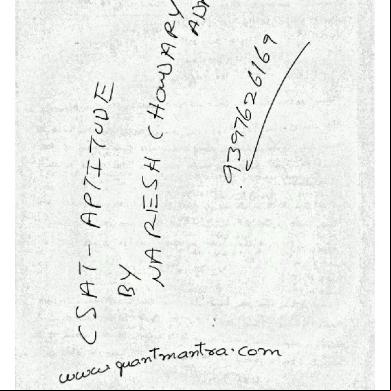 CSAT - APTITUDE
BY
NARESH CHOWDARY
9397626169
www.quantmantra.com